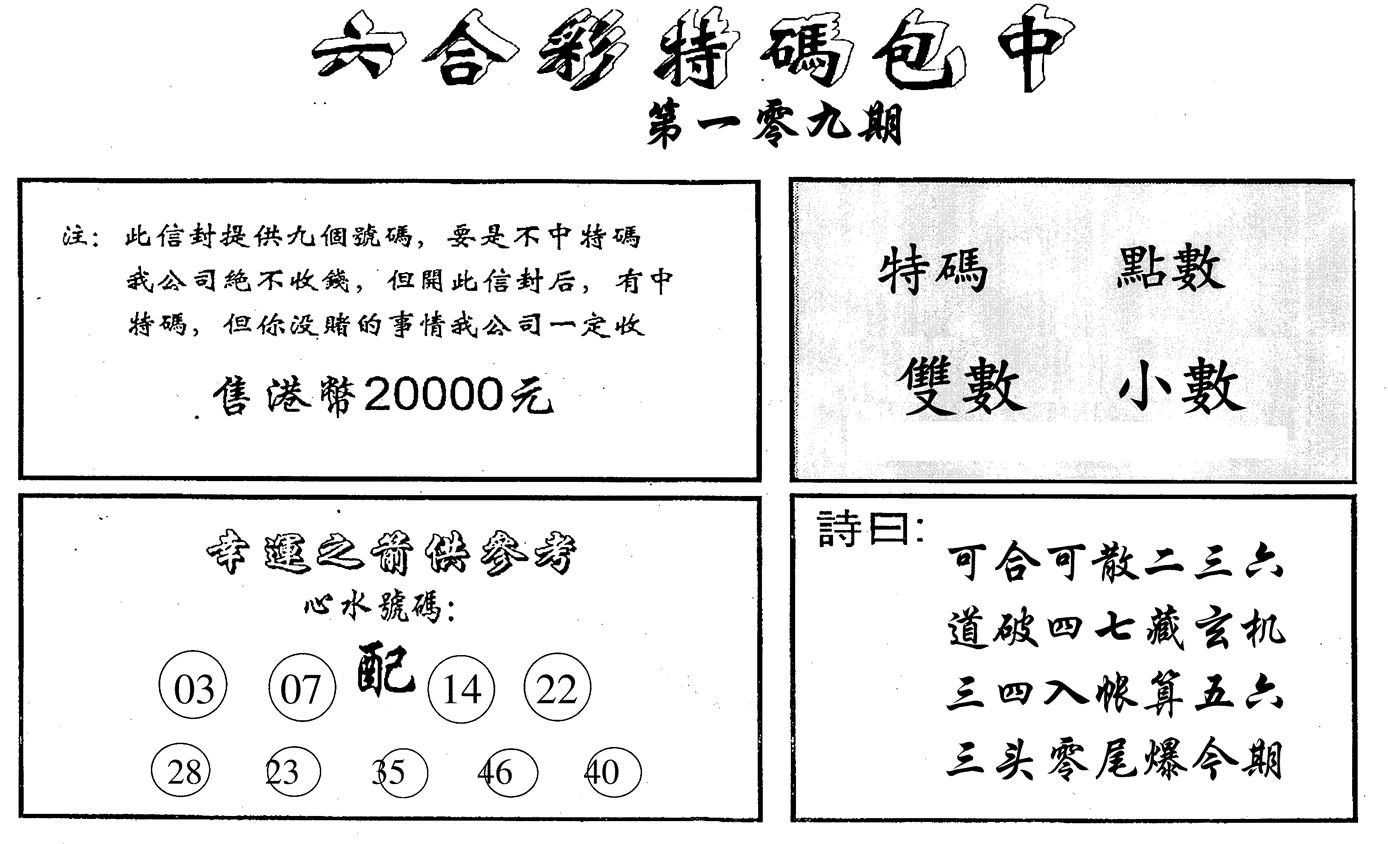 六合彩特碼包中
第一零九期
注：此信封提供九個號碼，要是不中特碼
我公司絕不收錢，但開此信封后，有中
特碼，但你没賭的事情我公司一定收
售港幣20000元
特碼 點數
雙數 小數
幸運之箭供參考
心水號碼：
03 07 配 14 22
28 23 35 46 40
詩曰：
可合可散二三六
道破四七藏玄机
三四入帐算五六
三头零尾爆今期